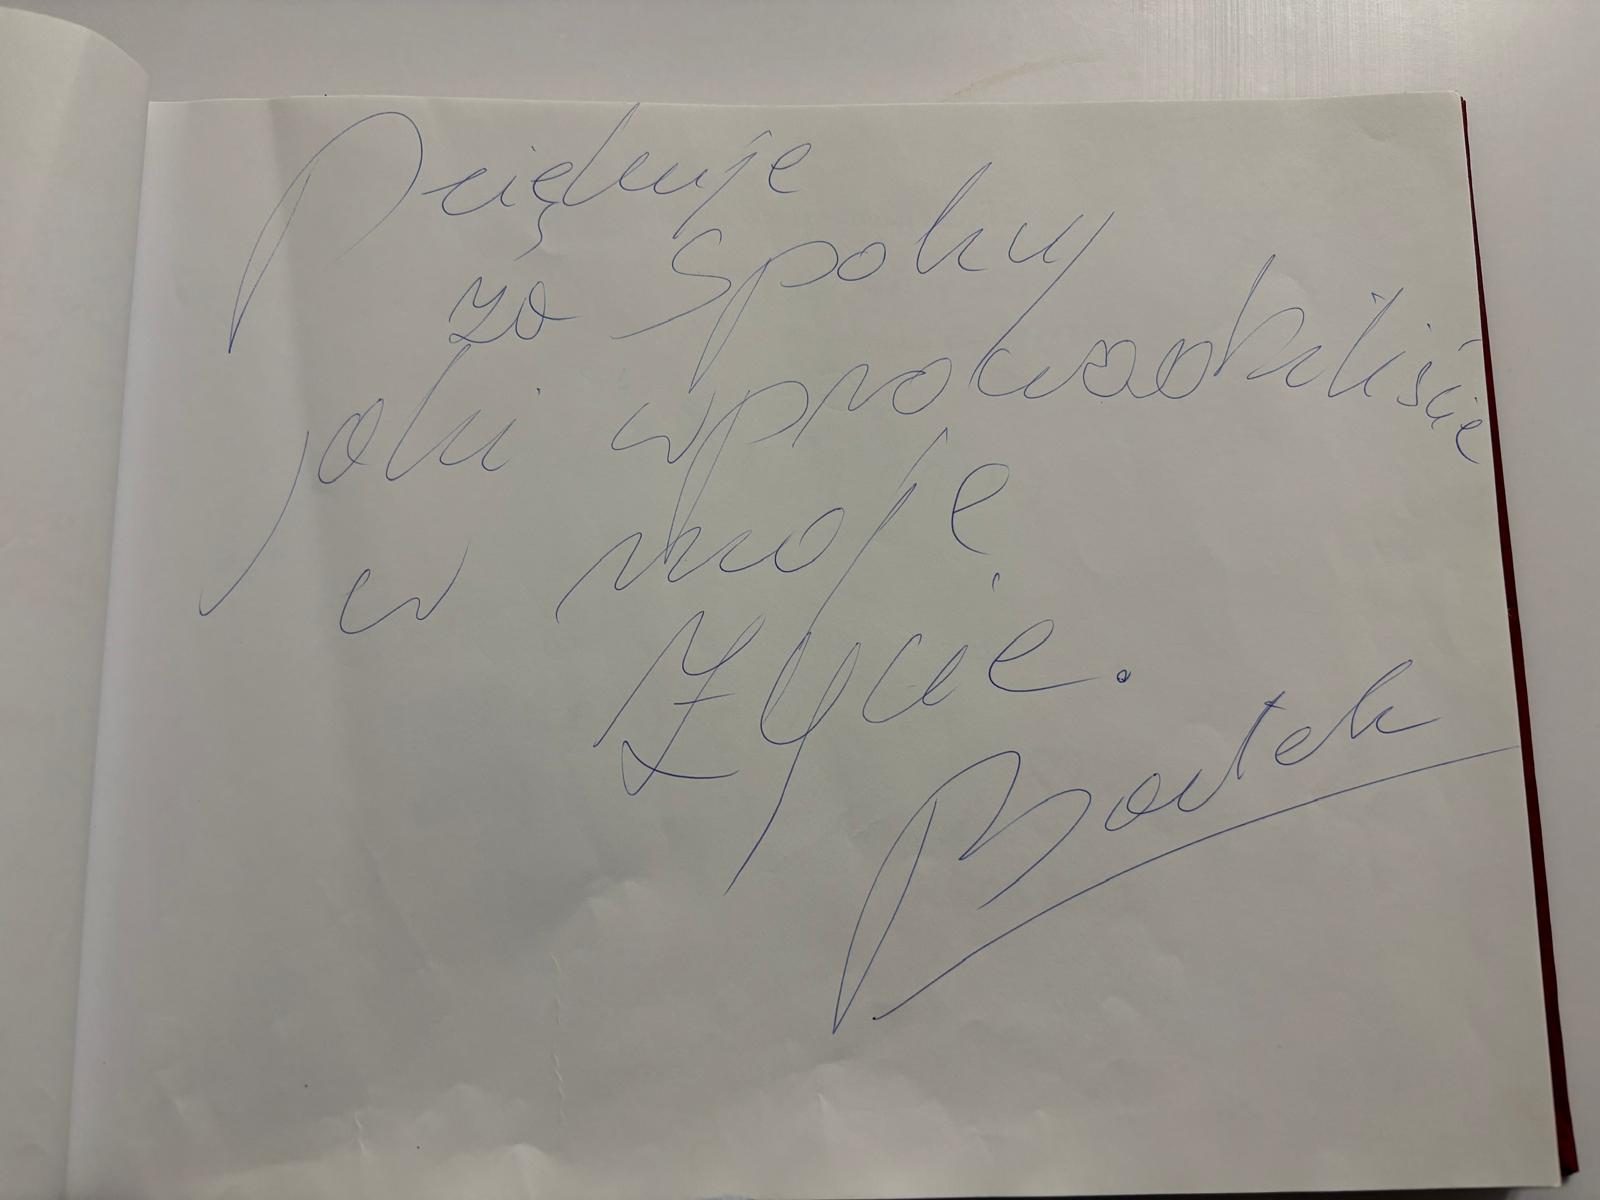 Dziękuję
za spokój
jaki wprowadziliście
w moje
życie.
Bartek